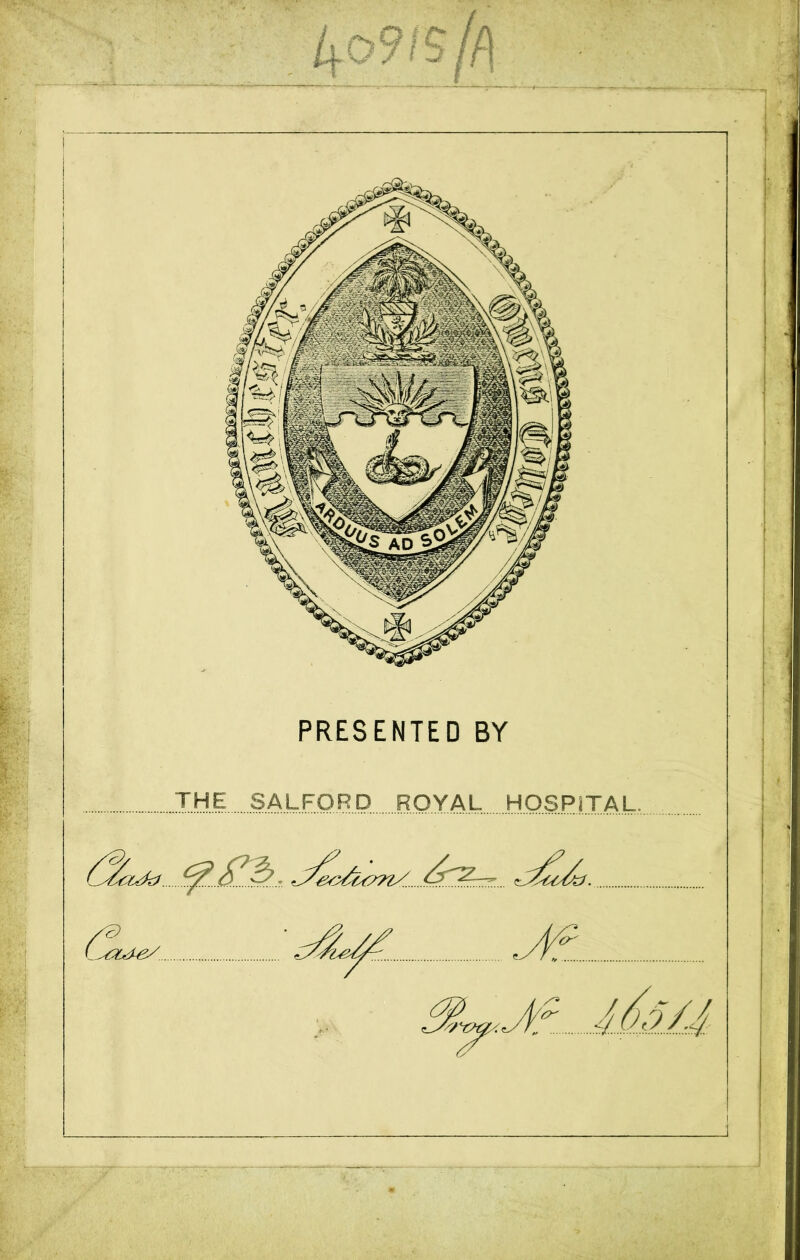 40915/A
Manchester. Owens College
ARDUUS AD SOLEM
PRESENTED BY
THE SALFORD ROYAL HOSPITAL.
Class Section Subs.
Case Shelf No.
Prog. No. 46514